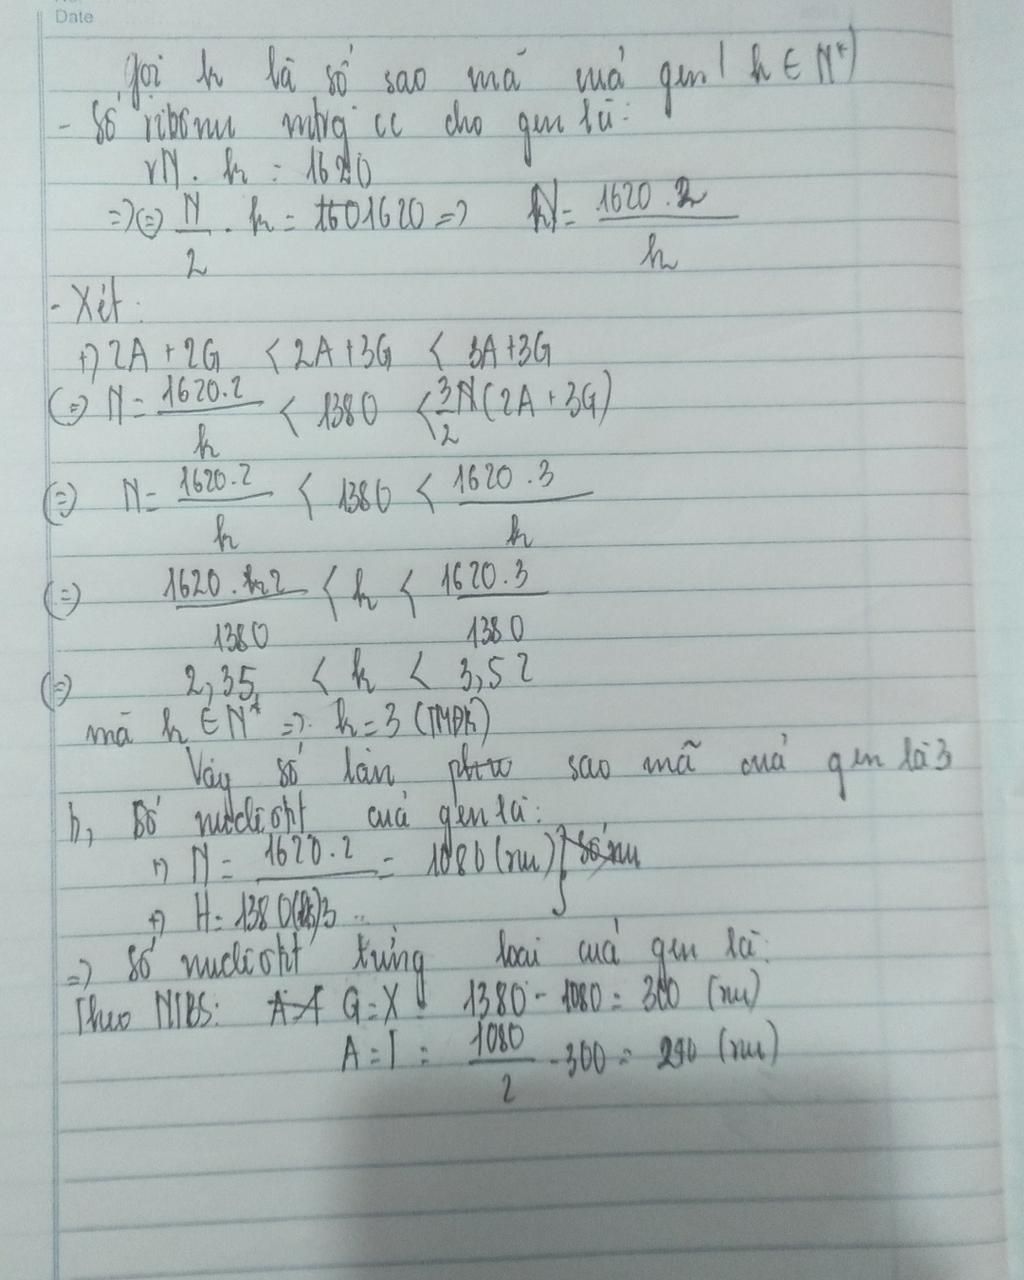 Date
gọi k là số sao mã của gen ( k ∈ N*)
- Số ribônu mtrg cc cho gen là:
rN . k = 1620
=> (=) N/2 . k = 1601620 => N = 1620 . 2 / k
- Xét :
+) 2A + 2G < 2A + 3G < 3A + 3G
(=) N = 1620.2 / k < 1380 < 3/2 N (2A + 3G)
(=) N = 1620.2 / k < 1380 < 1620 .3 / k
(=) 1620 . 2 / 1380 < k < 1620.3 / 1380
(=) 2,35 < k < 3,52
mà k ∈ N* => k = 3 (TMĐK)
Vậy số lần sao mã của gen là 3
b, Số nuclêôtit của gen là:
+) N = 1620.2 / = 1080 (nu) } số nu
+) H = 1380 (lk) 3
=> Số nuclêôtit từng loại của gen là:
Theo NTBS: A=A G = X = 1380 - 1080 = 300 (nu)
A = T = 1080 / 2 - 300 = 240 (nu)